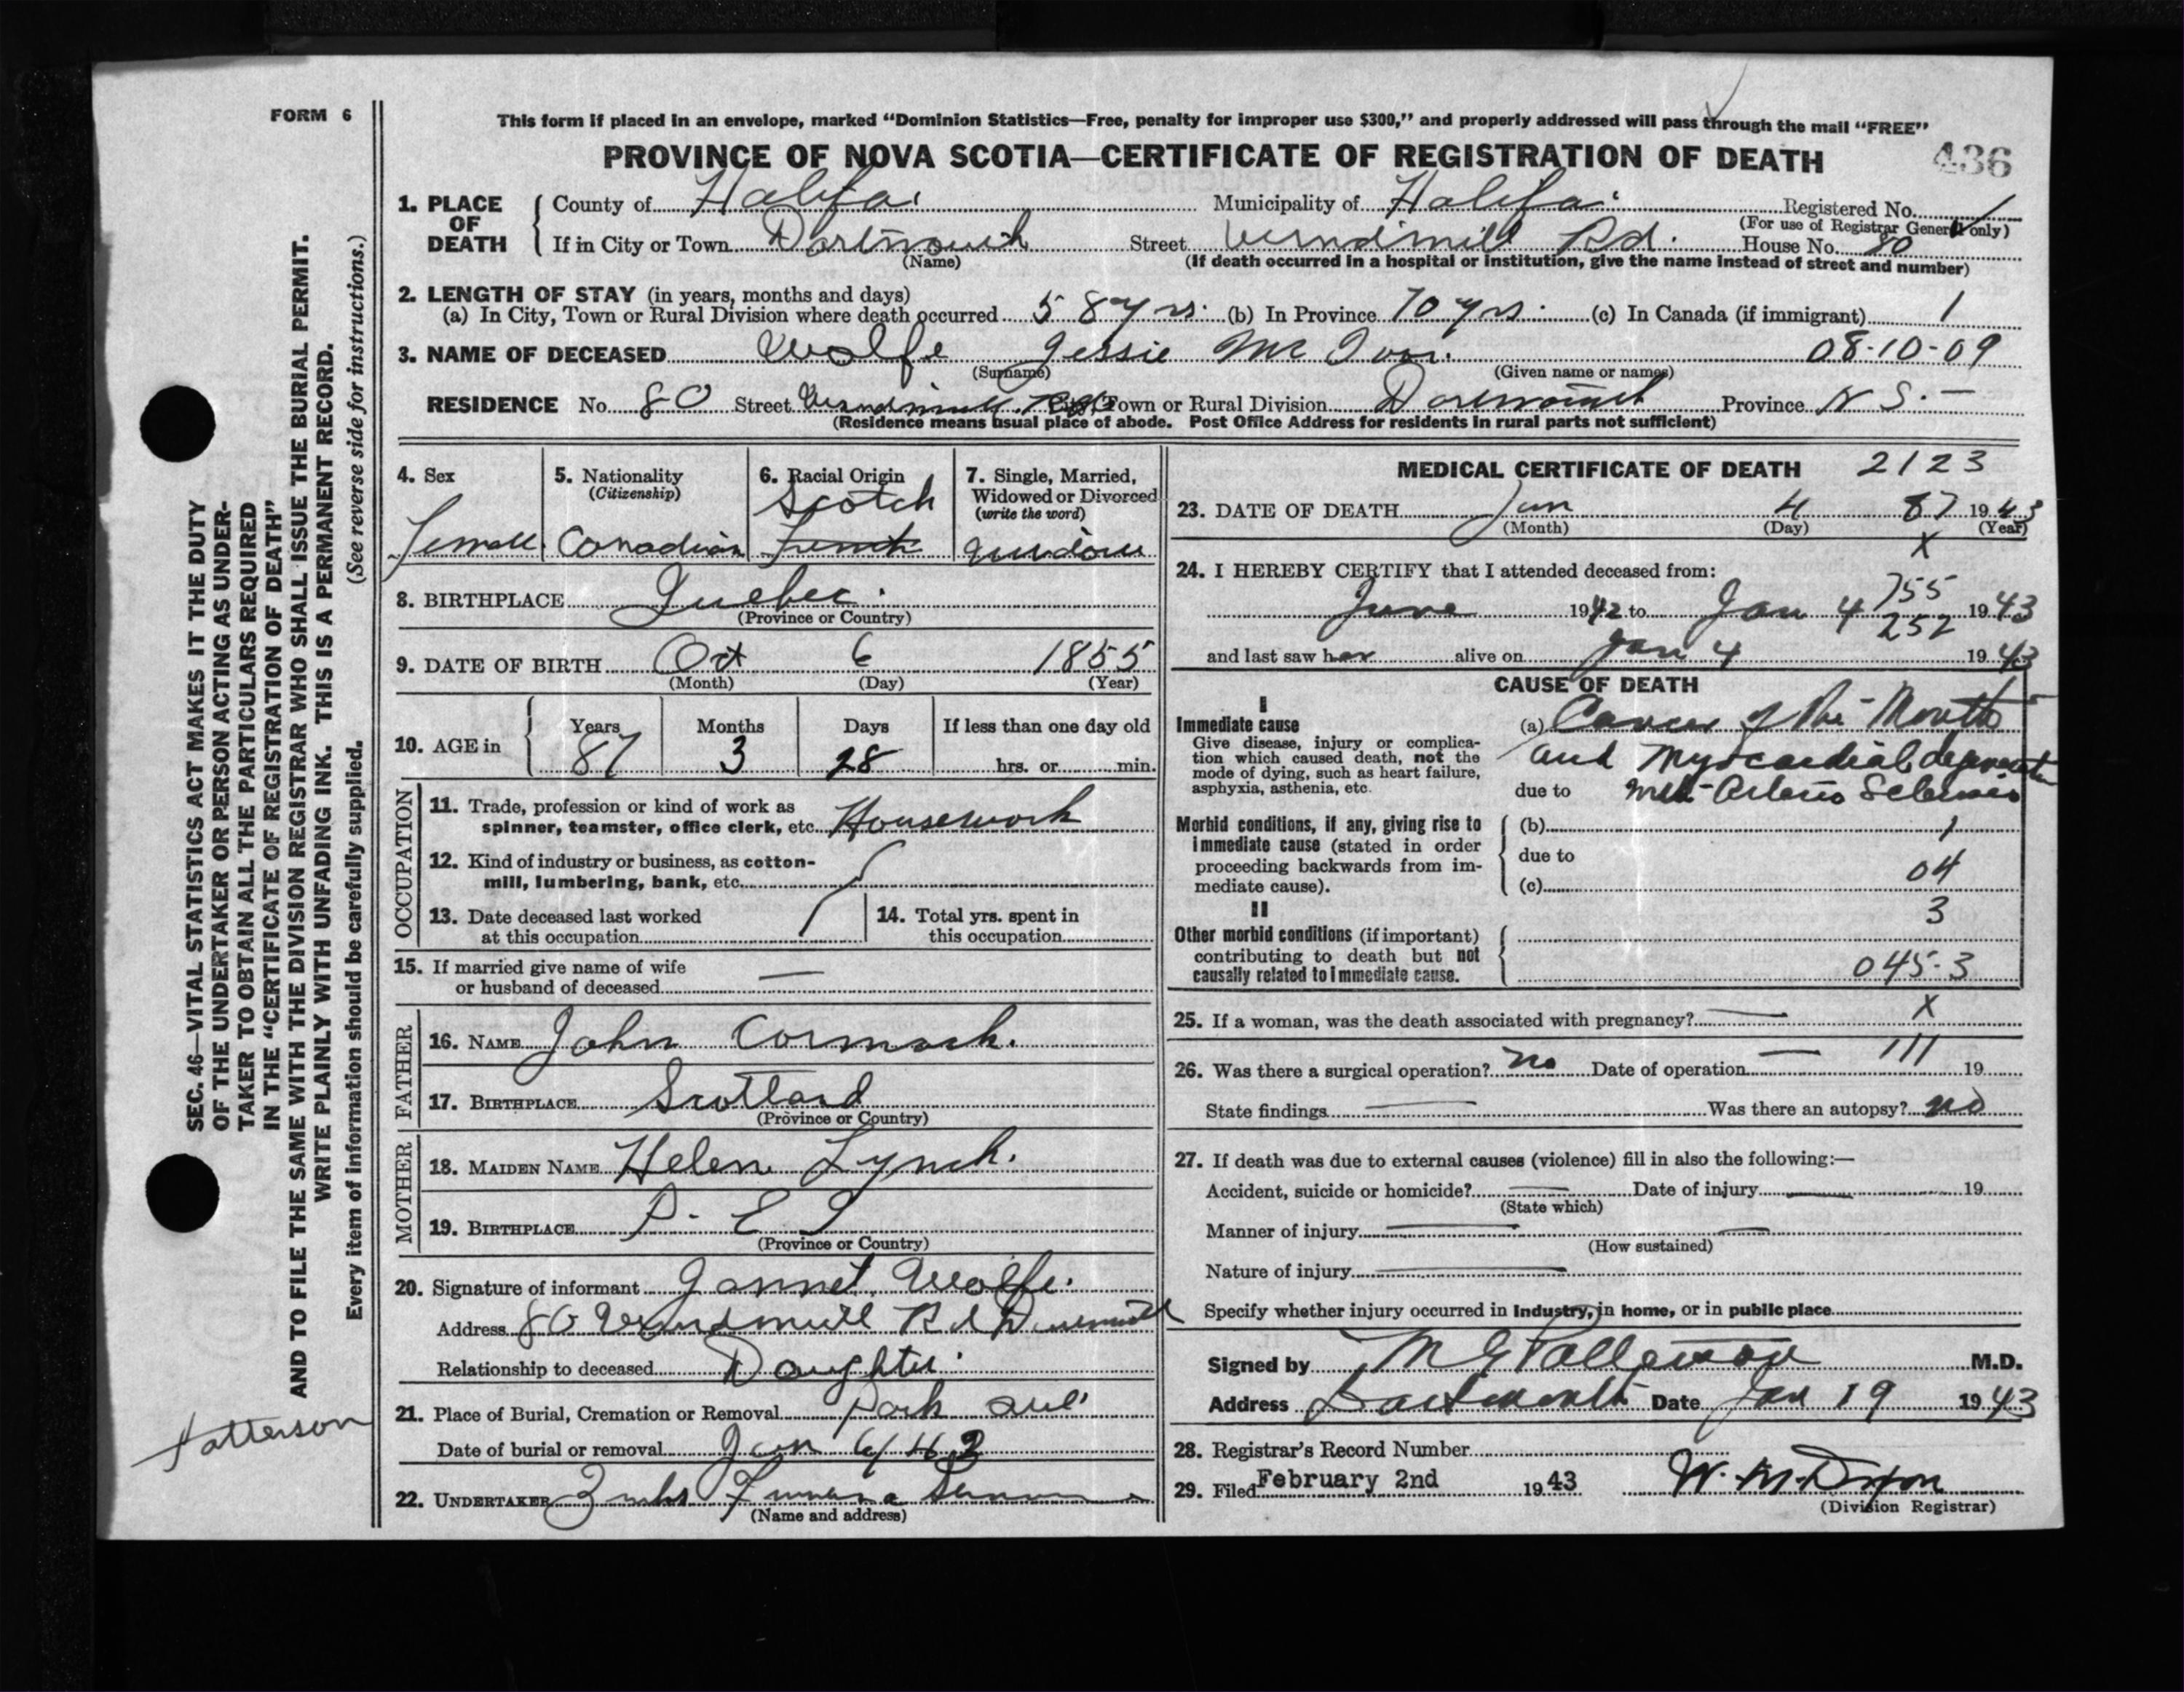 FORM 6
This form if placed in an envelope, marked "Dominion Statistics—Free, penalty for improper use $300," and properly addressed will pass through the mail "FREE"
PROVINCE OF NOVA SCOTIA—CERTIFICATE OF REGISTRATION OF DEATH 436
1. PLACE OF DEATH
County of Halifax Municipality of Halifax Registered No.
(For use of Registrar General only)
If in City or Town Dartmouth Street Windmill Rd. House No. 80
(Name) (If death occurred in a hospital or institution, give the name instead of street and number)
2. LENGTH OF STAY (in years, months and days)
(a) In City, Town or Rural Division where death occurred 58 yrs. (b) In Province 70 yrs. (c) In Canada (if immigrant) 1
3. NAME OF DECEASED Wolfe Jessie 08-10-09
(Surname) (Given name or names)
RESIDENCE No. 80 Street Windmill Rd City, Town or Rural Division Dartmouth Province N S. —
(Residence means usual place of abode. Post Office Address for residents in rural parts not sufficient)
4. Sex
Female
5. Nationality
(Citizenship)
Canadian
6. Racial Origin
Scotch
French
7. Single, Married,
Widowed or Divorced
(write the word)
Widow
8. BIRTHPLACE Quebec.
(Province or Country)
9. DATE OF BIRTH Oct 6 1855
(Month) (Day) (Year)
10. AGE in
Years Months Days If less than one day old
87 3 28 hrs. or min.
OCCUPATION
11. Trade, profession or kind of work as
spinner, teamster, office clerk, etc. Housework
12. Kind of industry or business, as cotton-
mill, lumbering, bank, etc.
13. Date deceased last worked
at this occupation
14. Total yrs. spent in
this occupation
15. If married give name of wife
or husband of deceased —
FATHER
16. NAME John Cormack.
17. BIRTHPLACE Scotland
(Province or Country)
MOTHER
18. MAIDEN NAME Helen Lynch.
19. BIRTHPLACE P. E I
(Province or Country)
20. Signature of informant Jannet Wolfe.
Address 80 Windmill Rd Dartmouth
Relationship to deceased Daughter.
21. Place of Burial, Cremation or Removal
Date of burial or removal Jan 6/
22. UNDERTAKER
(Name and address)
MEDICAL CERTIFICATE OF DEATH 2123
23. DATE OF DEATH Jan 4 87 1943
(Month) (Day) (Year)
X
24. I HEREBY CERTIFY that I attended deceased from:
755
June 1942 to Jan 4 1943
252
and last saw her alive on Jan 4 1943
CAUSE OF DEATH
I
Immediate cause
Give disease, injury or complica-
tion which caused death, not the
mode of dying, such as heart failure,
asphyxia, asthenia, etc.
(a) Cancer of the Mouth
and Myocardial degeneration
due to with Arterio Sclerosis
Morbid conditions, if any, giving rise to
immediate cause (stated in order
proceeding backwards from im-
mediate cause).
(b) 1
due to
04
(c)
II
3
Other morbid conditions (if important)
contributing to death but not
causally related to immediate cause.
045-3
X
25. If a woman, was the death associated with pregnancy? —
26. Was there a surgical operation? No Date of operation — 111 19
State findings — Was there an autopsy? no
27. If death was due to external causes (violence) fill in also the following:—
Accident, suicide or homicide? — Date of injury — 19
(State which)
Manner of injury — —
(How sustained)
Nature of injury —
Specify whether injury occurred in industry, in home, or in public place
Signed by M G Patterson M.D.
Address Dartmouth Date Jan 19 1943
28. Registrar's Record Number
29. Filed February 2nd 1943 W. M. Dixon
(Division Registrar)
SEC. 46—VITAL STATISTICS ACT MAKES IT THE DUTY
OF THE UNDERTAKER OR PERSON ACTING AS UNDER-
TAKER TO OBTAIN ALL THE PARTICULARS REQUIRED
IN THE "CERTIFICATE OF REGISTRATION OF DEATH"
AND TO FILE THE SAME WITH THE DIVISION REGISTRAR WHO SHALL ISSUE THE BURIAL PERMIT.
WRITE PLAINLY WITH UNFADING INK. THIS IS A PERMANENT RECORD.
Every item of information should be carefully supplied. (See reverse side for instructions.)
Patterson